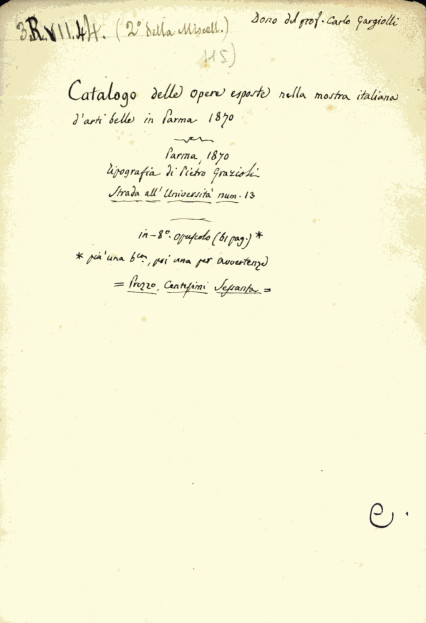 3.R.VII.44. (2ª della Miscell.)
Dono del prof. Carlo Gargiolli
(115)
Catalogo delle opere esposte nella mostra italiana
d'arti belle in Parma 1870
Parma, 1870
tipografia di Pietro Grazioli
Strada all'Università num. 13
in-8º. opuscolo (61 pag.) *
* più una bca, poi una per avvertenze
= Prezzo, Centesimi Sessanta =
e.